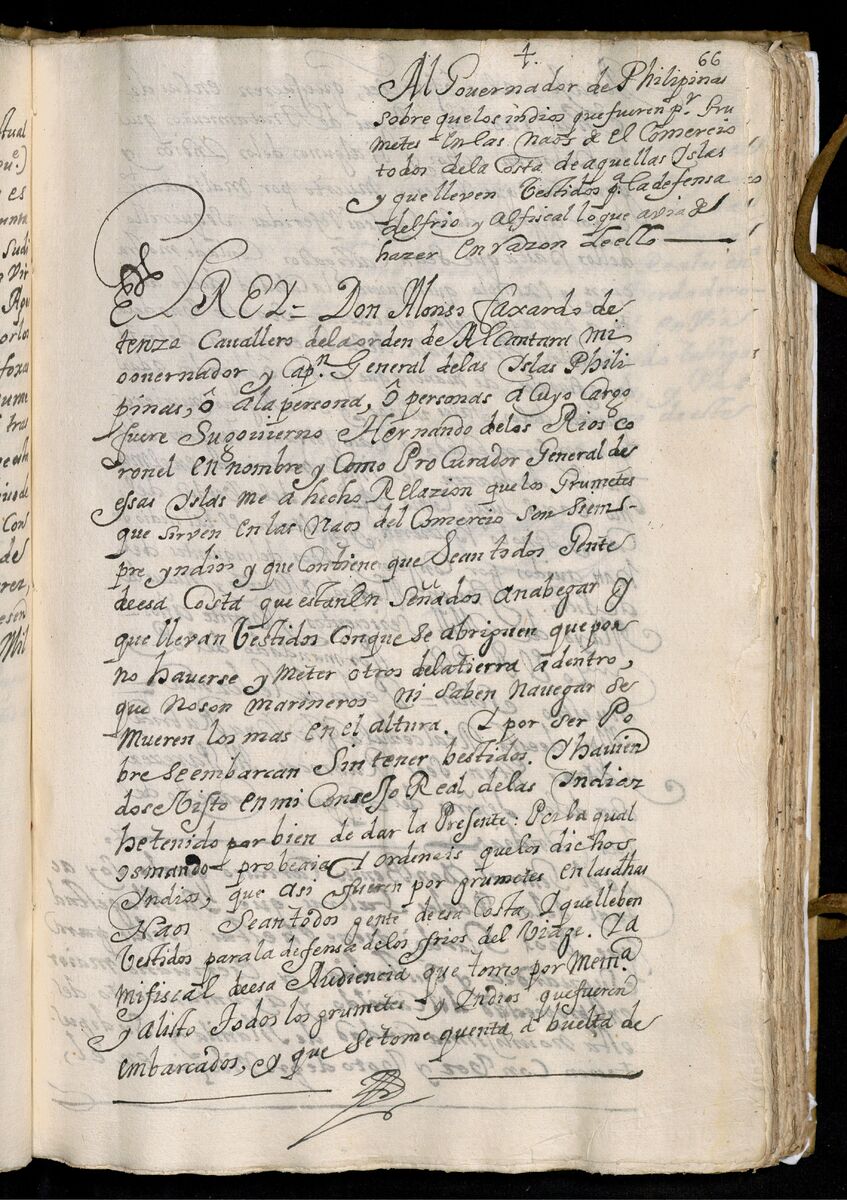 66
Al Governador de Philipinas
sobre que los indios que fueren pr. Gru
metes en las Naos de el Comercio
todos de la Costa de aquellas Islas
y que lleven Vestidos pa. la defensa
del frio y Al fiscal lo que avia de
hazer en razon de ello
El REY = Don Alonso faxardo de
tenza Cavallero de la orden de Alcantara mi
governador y capn. General de las Islas Phili
pinas, ô a la persona, ô personas a Cuyo Cargo
fuere Su govierno Hernando de los Rios Co
ronel en nombre y Como ProCurador General de
essas Islas me a hecho Relazion que los Grumetes
que sirven en las Naos del Comercio son siem-
pre yndios y que Contiene que Sean todos Gente
de esa Costa que estan EnSeñados a nabegar Y
que llevan Vestidos Con que Se abriguen que por
no haverse y meter otros de la tierra adentro,
que No son marineros ni Saben Navegar Se
Mueren los mas en el altura. Y por ser Po
bre Se embarcan Sin tener bestidos. Y havien
dose Visto en mi Consejo Real de las Indias
he tenido por bien de dar la Presente: Por la qual
os mando probeais Y ordeneis que los dichos
Indios, que asi fueren por grumetes en las dhas
Naos Sean todos gente de esa Costa, Y que lleben
Vestidos para la defensa de los frios del Viage. Y a
mi fiscal de esa Audiencia que tome por Mema.
y alisto todos los grumetes y Indios que fueren
embarcados, y que Se tome quenta a buelta de